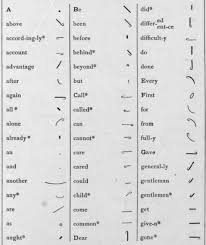 A
above
accord-ing-ly*
account
advantage
after
again
all*
alone
already*
an
and
another
any*
are
as
aught*
Be
been
before
behind*
beyond*
but
Call*
called*
can
cannot*
care
cared
could
child*
come
common*
Dear
did*
differ ed ent-ce
difficult-y
do
done
Every
First
for
from
full-y
Gave
general-ly
gentleman
gentlemen*
get
give-n*
gone*